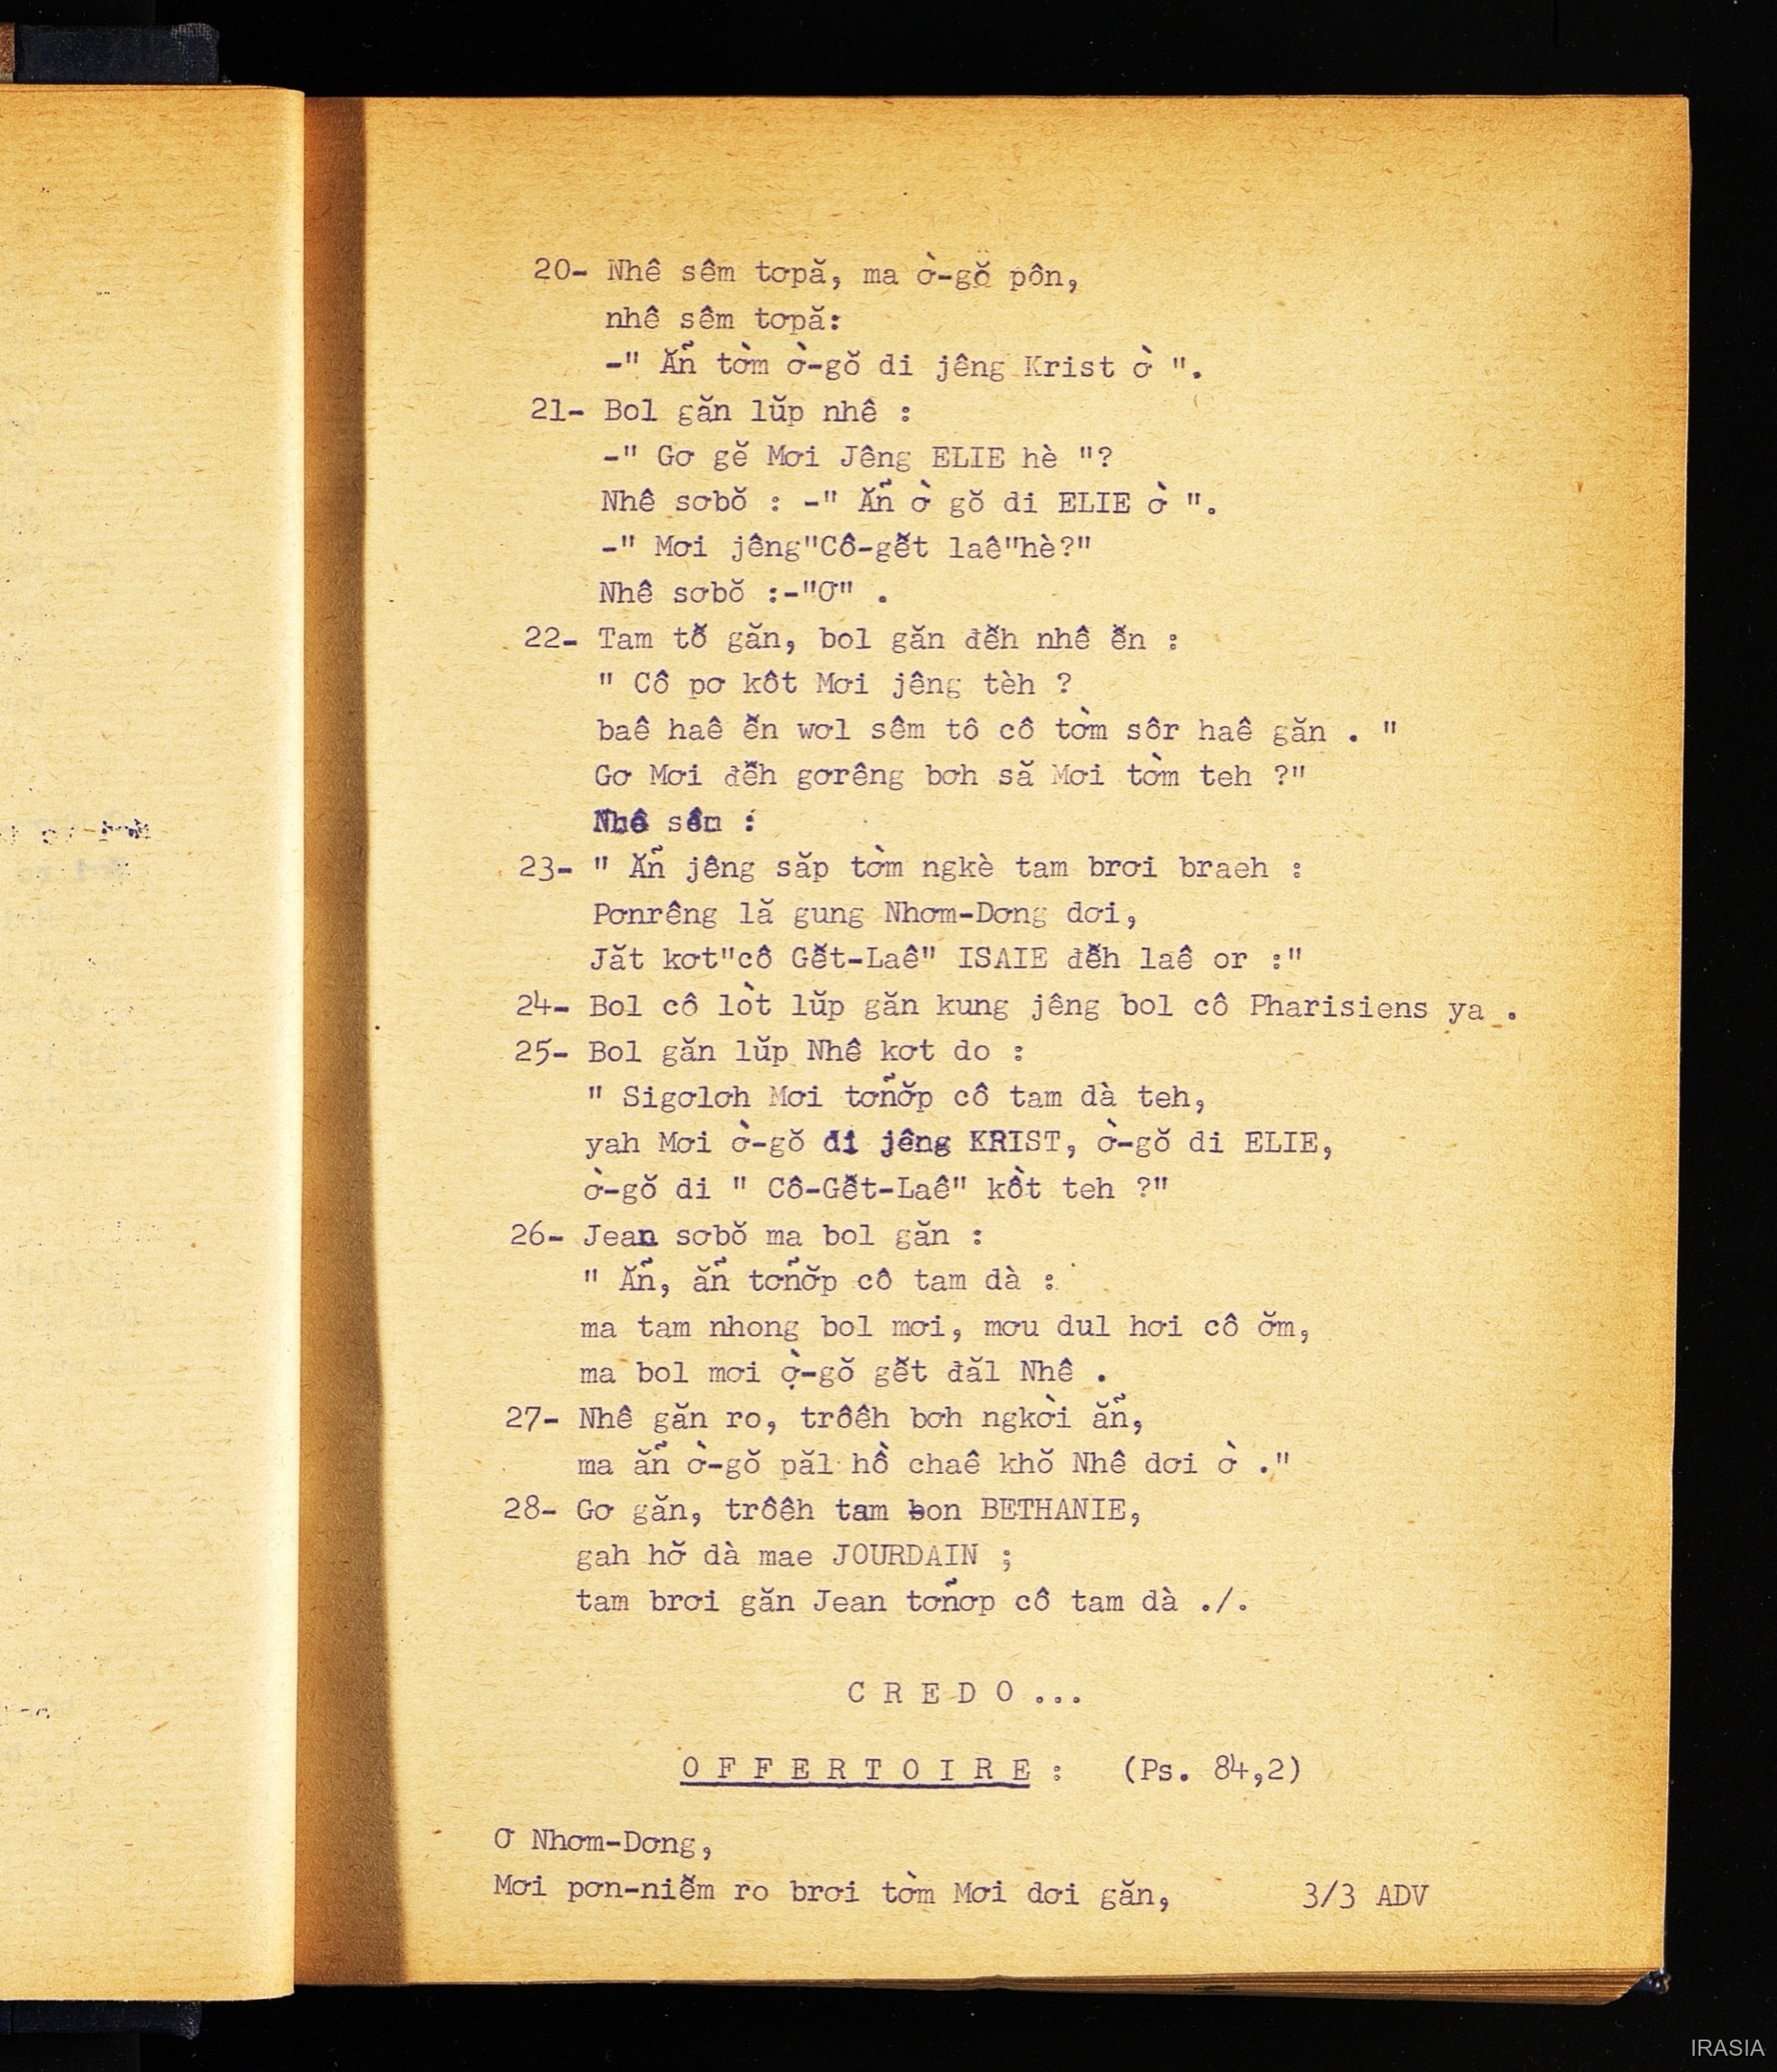 20- Nhê sêm tơpă, ma ờ-gŏ pôn,
nhê sêm tơpă:
-" Ăñ tờm ờ-gŏ di jêng Krist ờ ".
21- Bol găn lŭp nhê :
-" Gơ gĕ Mơi Jêng ELIE hè "?
Nhê sơbŏ : -" Ăñ ờ gŏ di ELIE ờ ".
-" Mơi jêng"Cô-gê̆t laê"hè?"
Nhê sơbŏ :-"Ơ" .
22- Tam tô̆ găn, bol găn đê̆h nhê ê̆n :
" Cô pơ kôt Mơi jêng tèh ?
baê haê ê̆n wơl sêm tô cô tờm sôr haê găn . "
Gơ Mơi đê̆h gơrêng bơh să Mơi tờm teh ?"
Nhê sêm :
23- " Ăñ jêng săp tờm ngkè tam brơi braeh :
Pơnrêng lă gung Nhơm-Dơng dơi,
Jăt kơt"cô Gê̆t-Laê" ISAIE đê̆h laê or :"
24- Bol cô lòt lŭp găn kung jêng bol cô Pharisiens ya .
25- Bol găn lŭp Nhê kơt do :
" Sigơlơh Mơi tơñơ̆p cô tam dà teh,
yah Mơi ờ-gŏ di jêng KRIST, ờ-gŏ di ELIE,
ờ-gŏ di " Cô-Gê̆t-Laê" kồt teh ?"
26- Jean sơbŏ ma bol găn :
" Ăñ, ăñ tơñơ̆p cô tam dà :
ma tam nhong bol mơi, mơu dul hơi cô ơ̆m,
ma bol mơi ờ-gŏ gê̆t đăl Nhê .
27- Nhê găn ro, trôêh bơh ngkời ăñ,
ma ăñ ờ-gŏ păl hồ chaê khŏ Nhê dơi ờ ."
28- Gơ găn, trôêh tam bon BETHANIE,
gah hơ̆ dà mae JOURDAIN ;
tam brơi găn Jean tơñơp cô tam dà ./.
C R E D O ...
O F F E R T O I R E : (Ps. 84,2)
Ơ Nhơm-Dơng,
Mơi pơn-niê̆m ro brơi tờm Mơi dơi găn, 3/3 ADV
IRASIA